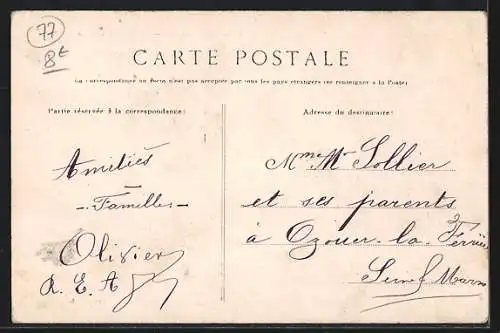 77
8€
CARTE POSTALE
La correspondance au recto n'est pas acceptée par tous les pays étrangers (se renseigner à la Poste)
Partie réservée à la correspondance:
Adresse du destinataire:
Amitiés
Familles
Olivier
R. E. A
Mme Mr Sollier
et ses parents
à Ozouer-la-Ferrière
Seine & Marne